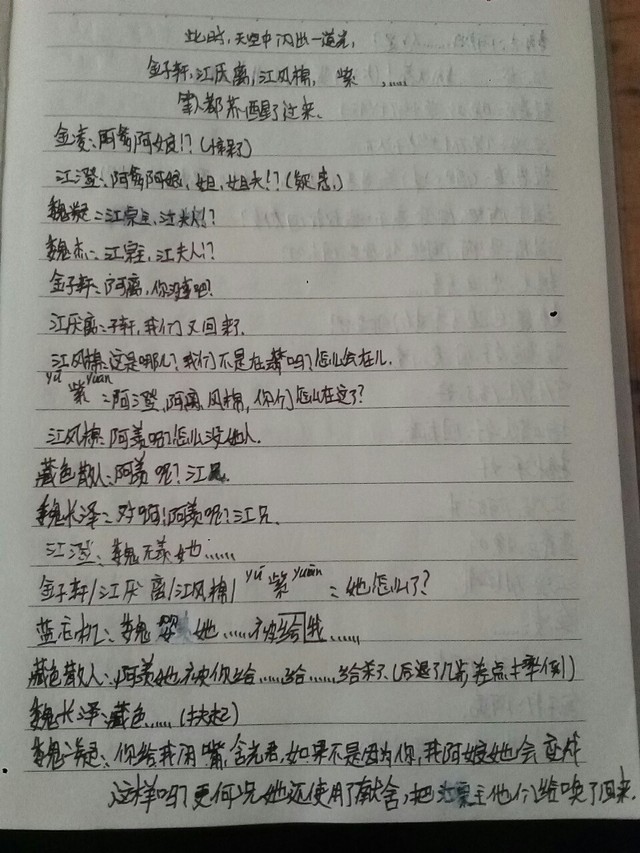 此时,天空中闪出一道光,
金子轩,江厌离,江风棉, 紫 ,……
等人都苏醒了过来.
金凌:阿爹阿娘!?(惊呆了)
江澄:阿爹阿娘,姐,姐夫!?(疑惑,)
魏凝:江宗主,江夫人!?
魏杰:江宗主,江夫人!?
金子轩:阿离,你没事吧!
江厌离:子轩,我们又回来了.
江风棉:这是哪儿?我们不是在 吗?怎么会在儿.
yú yuān
紫 :阿澄,阿离,风棉,你们怎么在这了?
江风棉:阿羡呢?怎么没她人.
藏色散人:阿羡呢?江兄.
魏长泽:对啊!阿羡呢?江兄.
江澄:魏无羡她……
金子轩/江厌离/江风棉/yú紫yuān:她怎么了?
蓝忘机:魏婴她……被给我……
藏色散人:阿羡她被你给……给……给杀了(后退了几步,差点摔倒)
魏长泽:藏色……(扶起)
魏凝:你给我闭嘴,含光君,如果不是因为你,我阿娘她会变成
这样吗?更何况她还使用了献舍,把江宗主他们给唤了回来.